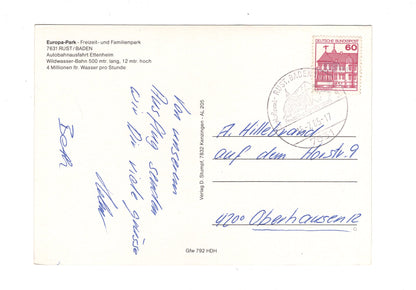 Europa-Park - Freizeit- und Familienpark
7631 RUST/BADEN
Autobahnausfahrt Ettenheim
Wildwasser-Bahn 500 mtr. lang, 12 mtr. hoch
4 Millionen ltr. Wasser pro Stunde
Von unserem
Ausflug senden
wir Dir viele Grüsse
Verlag D. Stumpf, 7832 Kenzingen - AL 205
Gfw 792 HDH
DEUTSCHE BUNDESPOST
60
RUST, BADEN
A. Hillebrand
auf dem Horstr. 9
4200 Oberhausen 12